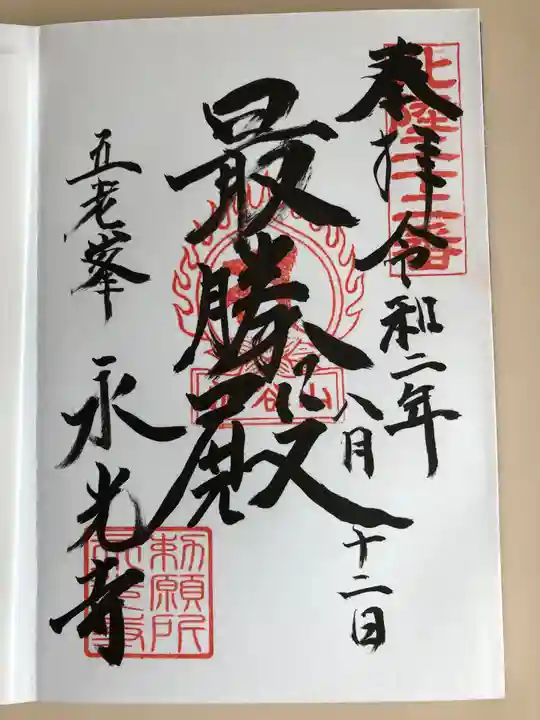 奉拝令和二年
八月十二日
北陸三十三番
最勝殿
五老峯
永光寺
勅願所